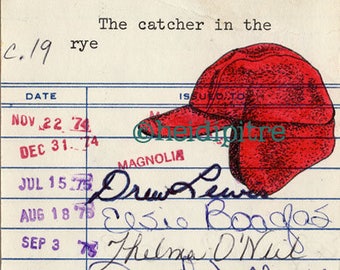 The catcher in the
c. 19 rye
DATE ISSUED TO
NOV 22 '74
©heidipitre
DEC 31 '74
MAGNOLIA
JUL 15 '75 Drew Lewis
AUG 18 '75 Elsie
SEP 3 '75 Thelma O'Neil